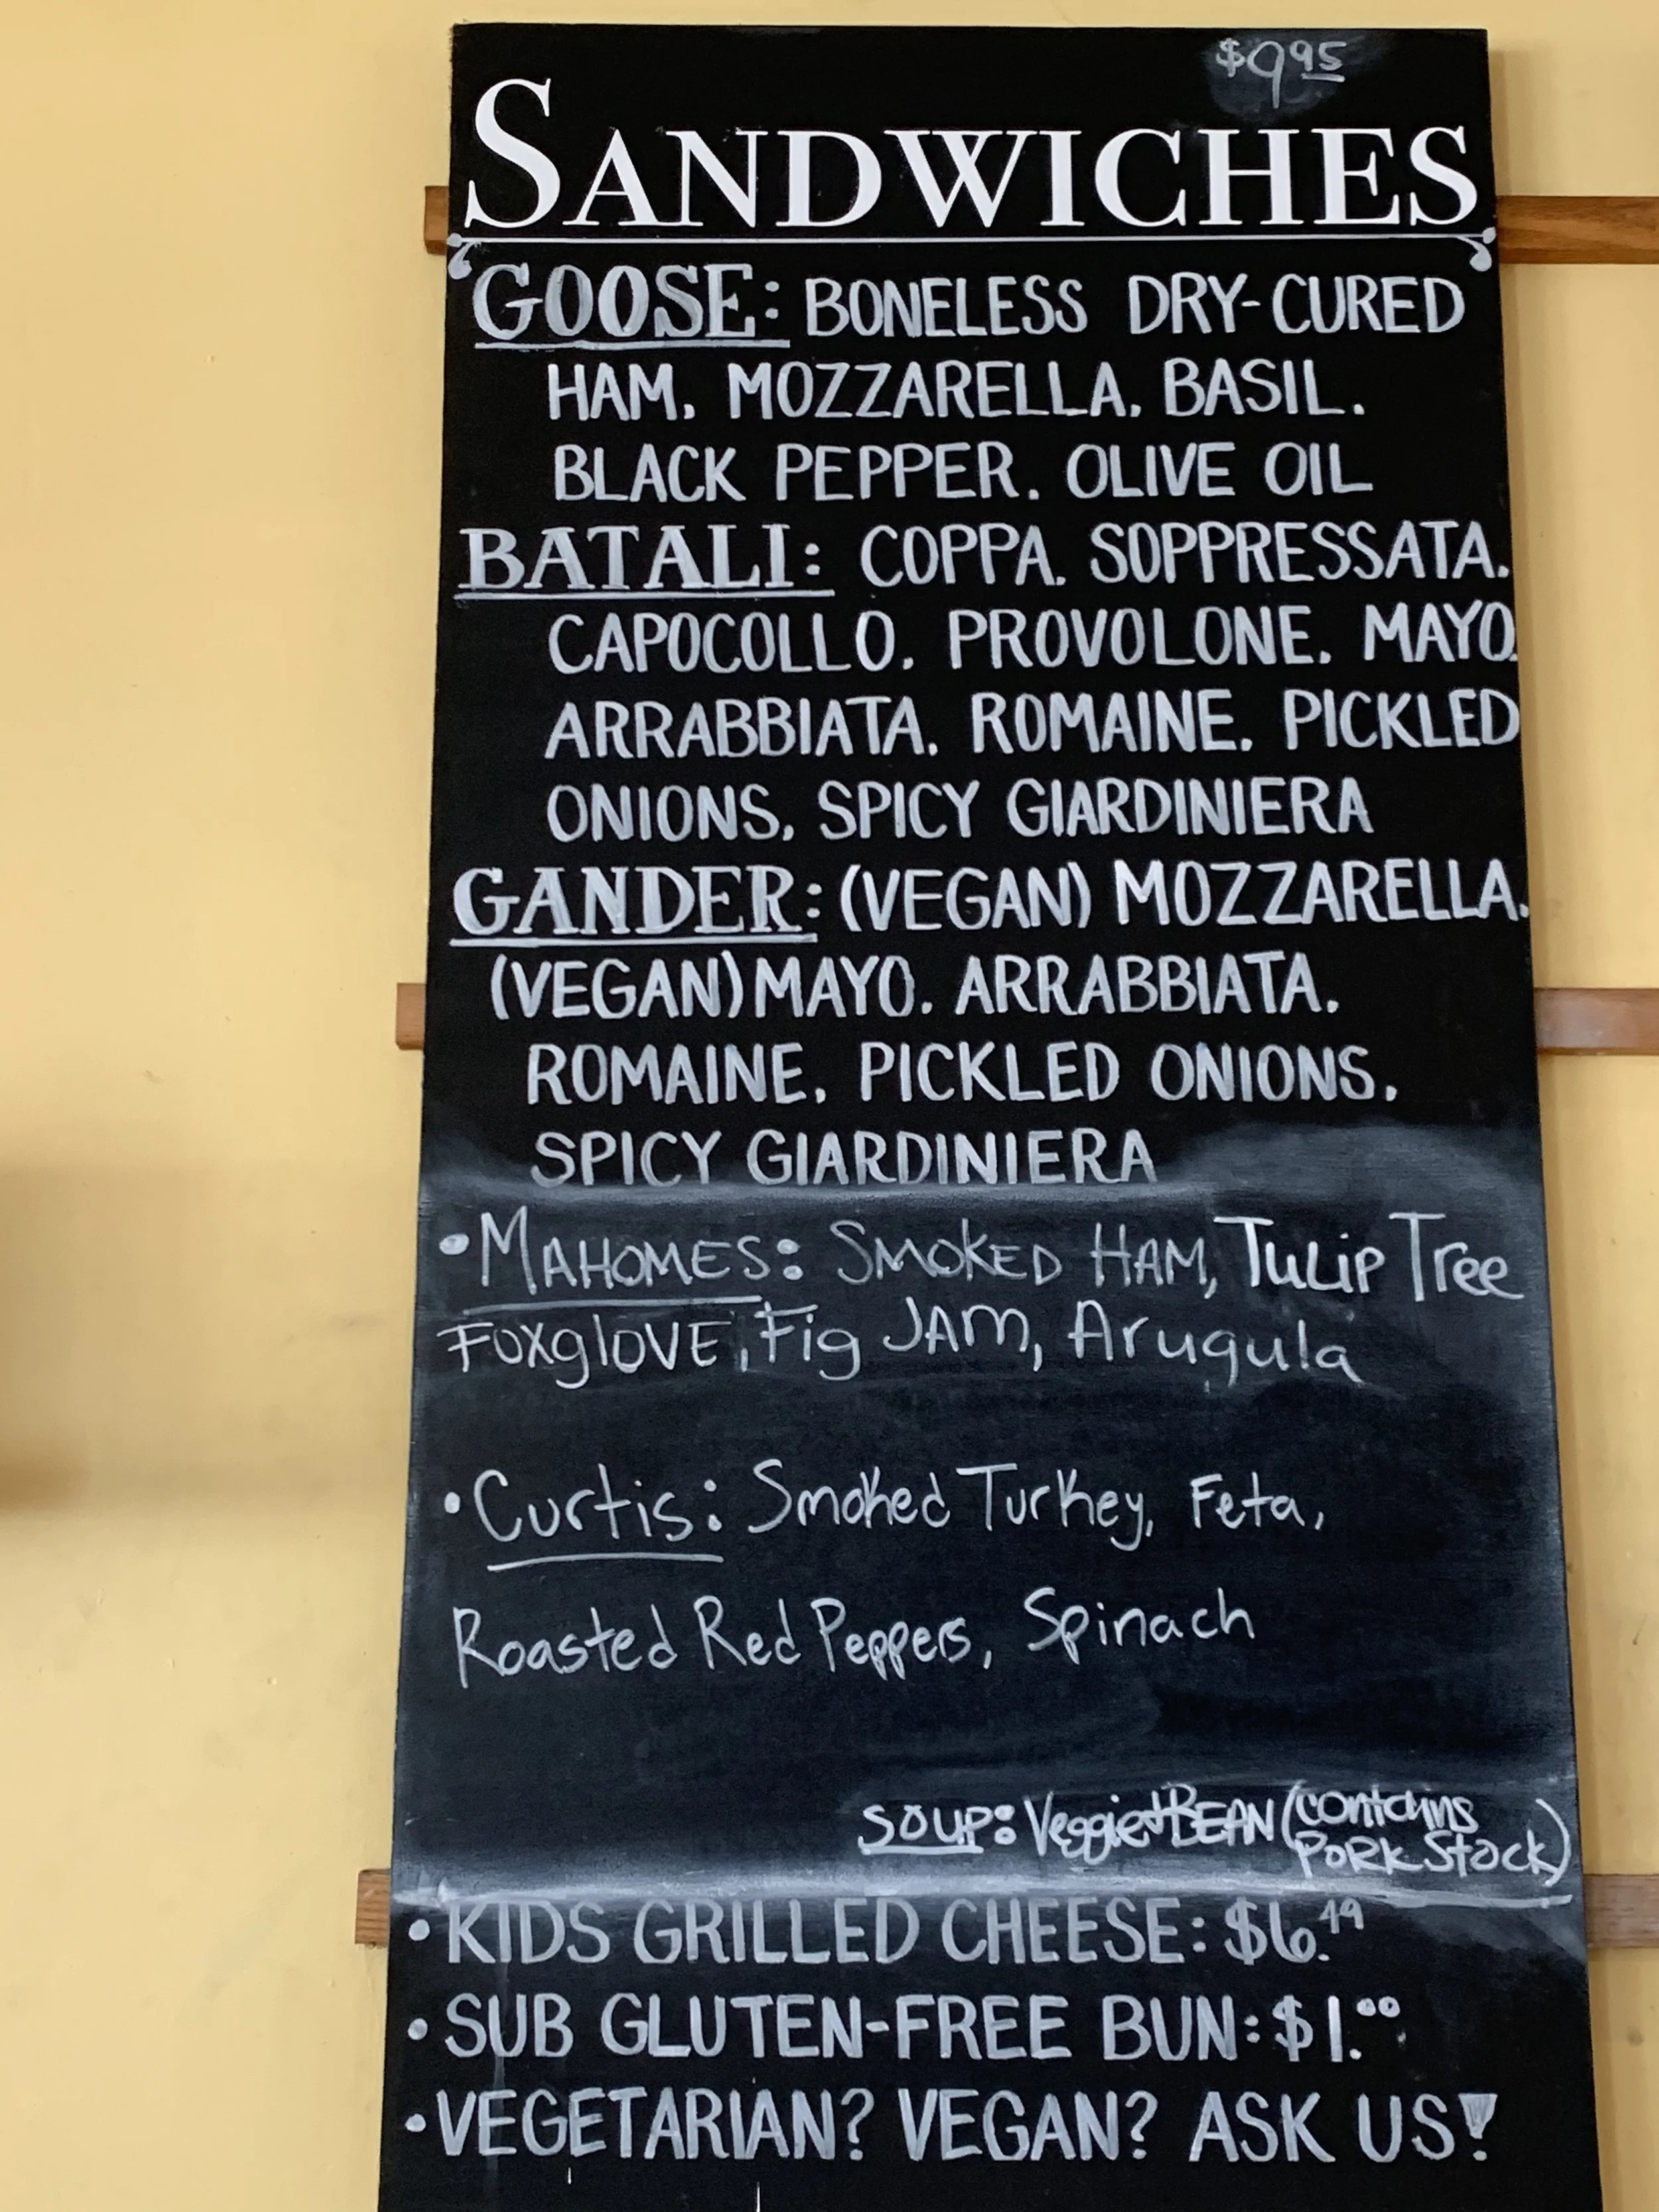 $9.95
SANDWICHES
GOOSE: BONELESS DRY-CURED
HAM, MOZZARELLA, BASIL,
BLACK PEPPER, OLIVE OIL
BATALI: COPPA, SOPPRESSATA,
CAPOCOLLO, PROVOLONE, MAYO,
ARRABBIATA, ROMAINE, PICKLED
ONIONS, SPICY GIARDINIERA
GANDER: (VEGAN) MOZZARELLA,
(VEGAN) MAYO, ARRABBIATA,
ROMAINE, PICKLED ONIONS,
SPICY GIARDINIERA
• MAHOMES: SMOKED HAM, TuLip Tree
FoxglOVE, Fig JAM, Arugula
• Curtis: Smoked Turkey, Feta,
Roasted Red Peppers, Spinach
SOUP: Veggie+BEAN (contains
PORK Stock)
• KIDS GRILLED CHEESE: $6.49
• SUB GLUTEN-FREE BUN: $1.00
• VEGETARIAN? VEGAN? ASK US!